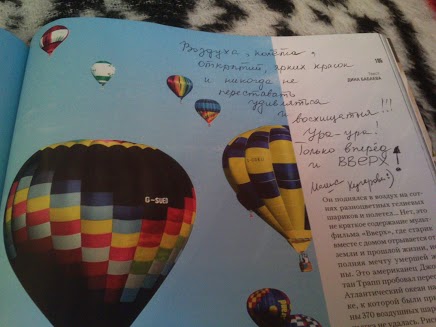 Воздуха, полёта,
открытий, ярких красок
и никогда не
переставать
удивляться
и
восхищаться!!!
Ура-ура!
Только вперёд
и ВВЕРХ!
Маша
116
Текст
ДИНА БАБАЕВА
Он поднялся в воздух на сот-
нях разноцветных гелиевых
шариков и полетел... Нет, это
не краткое содержание мульт-
фильма «Вверх», где старик
вместе с домом отрывается от
земли и прошлой жизни, ис-
полняя мечту умершей же
ны. Это американец Джо
тан Трапп пробовал перел
Атлантический океан на
ке, к которой были при
ны 370 воздушных шар
не удалась. Рис